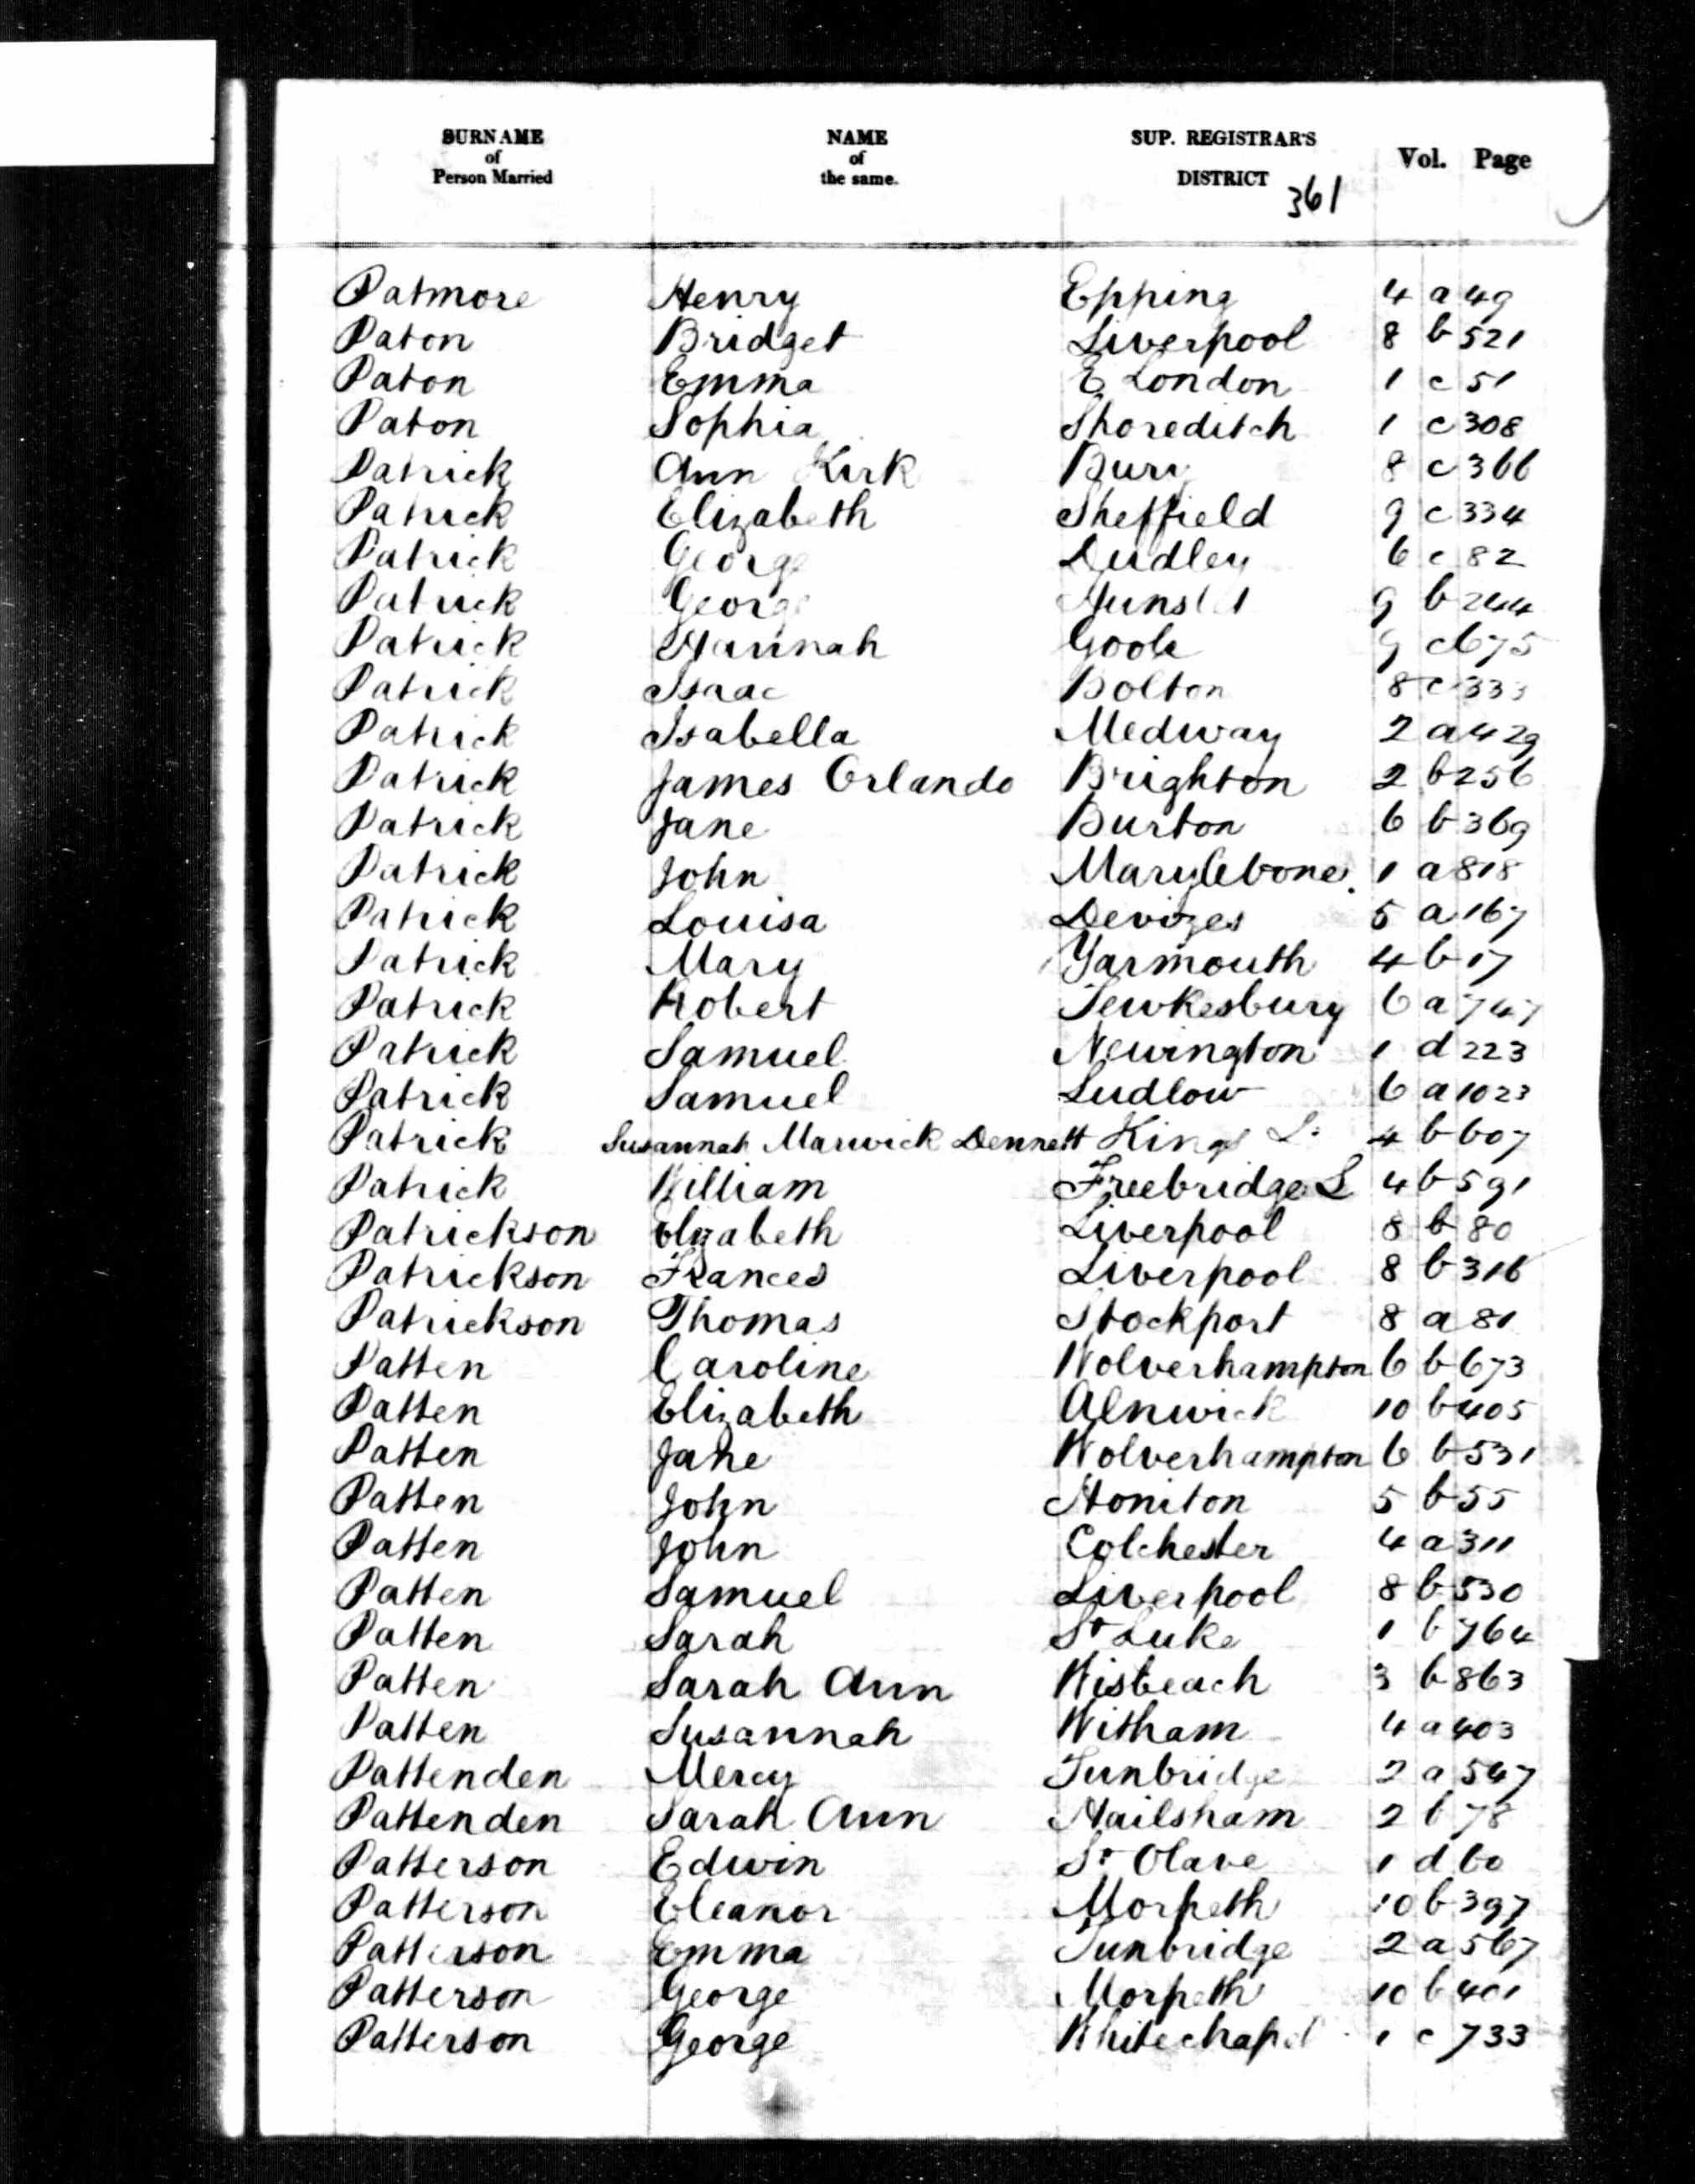 SURNAME of Person Married NAME of the same. SUP. REGISTRAR'S DISTRICT Vol. Page
361
Patmore Henry Epping 4 a 49
Paton Bridget Liverpool 8 b 521
Paton Emma E London 1 c 51
Paton Sophia Shoreditch 1 c 308
Patrick Ann Kirk Bury 8 c 366
Patrick Elizabeth Sheffield 9 c 334
Patrick George Dudley 6 c 82
Patrick George Hunslet 9 b 244
Patrick Hannah Goole 9 c 675
Patrick Isaac Bolton 8 c 333
Patrick Isabella Medway 2 a 429
Patrick James Orlando Brighton 2 b 256
Patrick Jane Burton 6 b 369
Patrick John Marylebone. 1 a 818
Patrick Louisa Devizes 5 a 167
Patrick Mary Yarmouth 4 b 17
Patrick Robert Tewkesbury 6 a 747
Patrick Samuel Newington 1 d 223
Patrick Samuel Ludlow 6 a 1023
Patrick Susannah Marwick Dennett Kings L. 4 b 607
Patrick William Freebridge L 4 b 591
Patrickson Elizabeth Liverpool 8 b 80
Patrickson Frances Liverpool 8 b 316
Patrickson Thomas Stockport 8 a 81
Patten Caroline Wolverhampton 6 b 673
Patten Elizabeth Alnwick 10 b 405
Patten Jane Wolverhampton 6 b 531
Patten John Honiton 5 b 55
Patten John Colchester 4 a 311
Patten Samuel Liverpool 8 b 530
Patten Sarah St Luke 1 b 764
Patten Sarah Ann Wisbeach 3 b 863
Patten Susannah Witham 4 a 403
Pattenden Mercy Tunbridge 2 a 547
Pattenden Sarah Ann Hailsham 2 b 78
Patterson Edwin St Olave 1 d 60
Patterson Eleanor Morpeth 10 b 397
Patterson Emma Tunbridge 2 a 567
Patterson George Morpeth 10 b 401
Patterson George Whitechapel 1 c 733